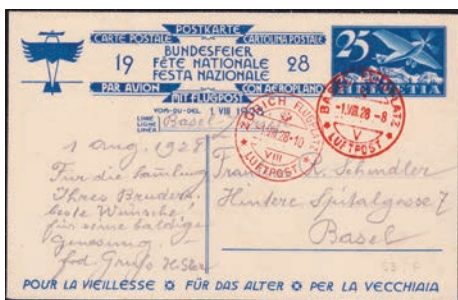 POSTKARTE
CARTE POSTALE CARTOLINA POSTALE
BUNDESFEIER
19 FÊTE NATIONALE 28
FESTA NAZIONALE
PAR AVION CON AEROPLANO
MIT FLUGPOST
VOM-DU-DEL 1 VIII 1928
LINIE
LIGNE
LINEA
Basel
25
HELVETIA
ZÜRICH FLUGPLATZ
-1.VIII.28-10
VIII
LUFTPOST
BASEL FLUGPLATZ
-1.VIII.28-8
V
LUFTPOST
1 Aug. 1928
Für die Samlung
Ihres Bruders
beste Wünsche
für seine baldige
Genesung.
Frau R. Schindler
Hintere Spitalgasse 7
Basel
POUR LA VIEILLESSE FÜR DAS ALTER PER LA VECCHIAIA